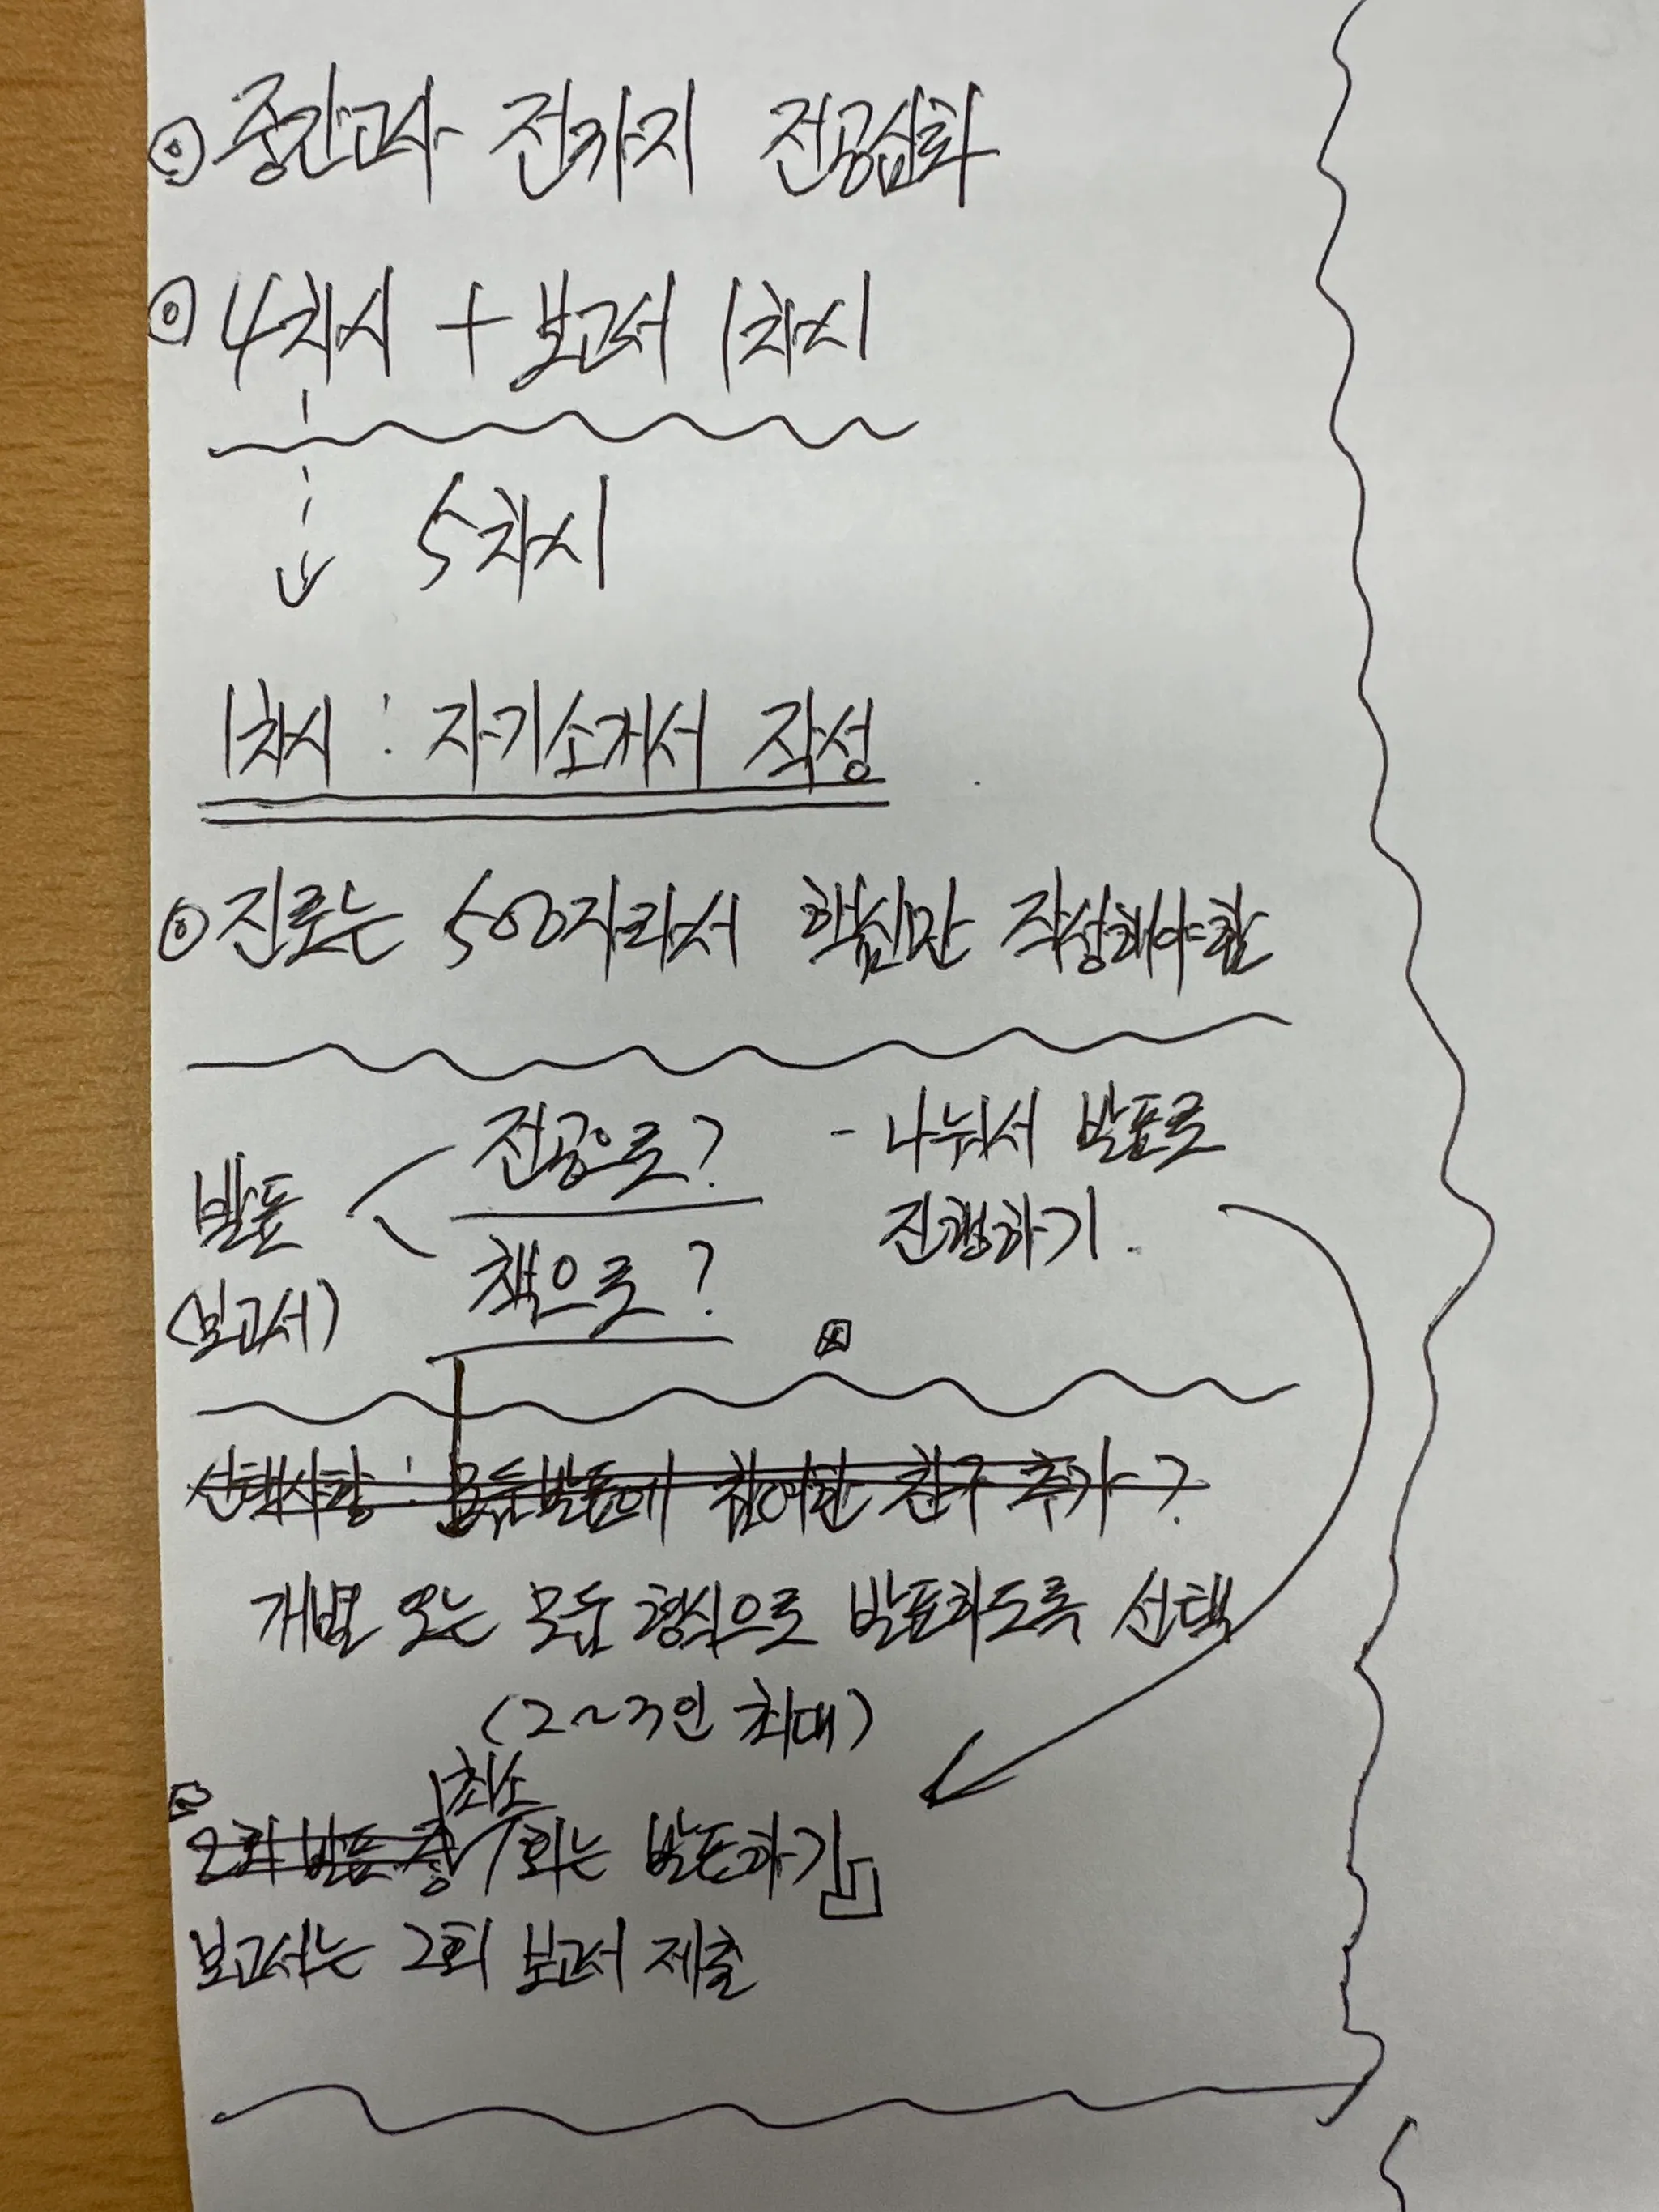 중간고사 전까지 전공심화
4차시 + 보고서 1차시
5차시
1차시 : 자기소개서 작성
진로는 500자라서 핵심만 작성해야함
발표
(보고서)
전공으로?
책으로?
- 나눠서 발표로
진행하기.
선택사항 : 모둠발표에 참여한 친구 추가?
개별 또는 모둠 형식으로 발표하도록 선택
(2~3인 최대)
최소
2회 발표 중 1회는 발표하기
보고서는 2회 보고서 제출